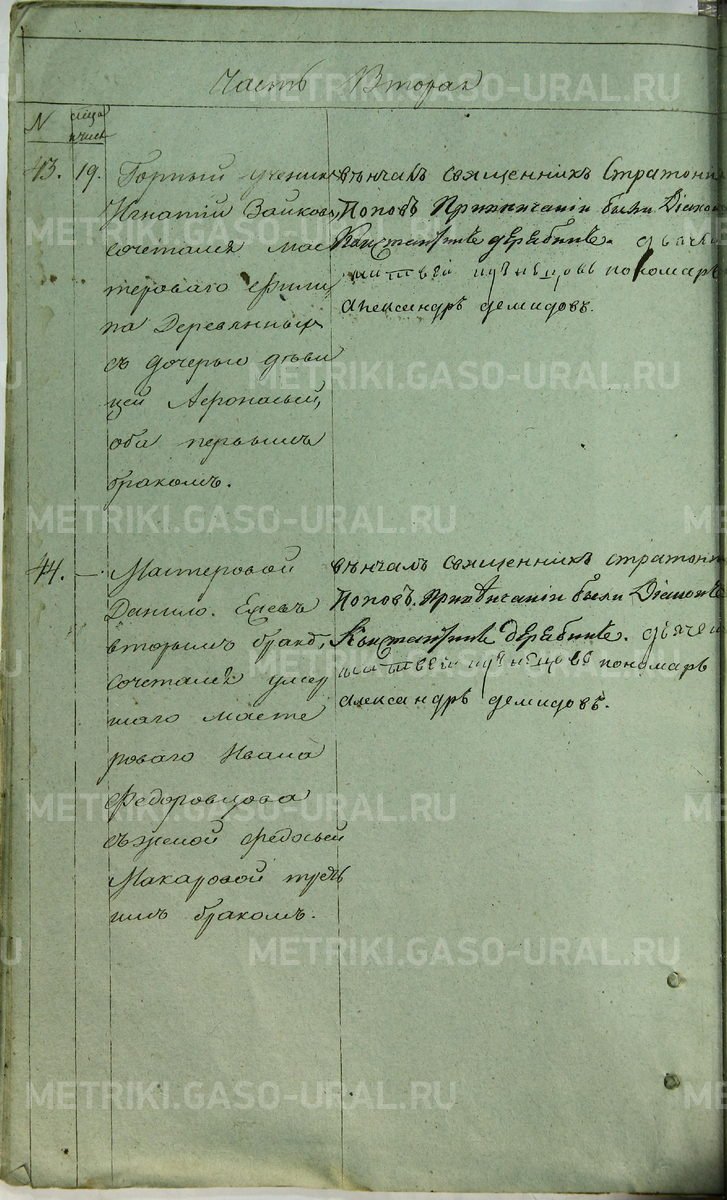 Часть Вторая
N
числа
43. 19.
Горный ученикъ
Игнатий Зайковъ,
сочетался мас
тероваго Фили
па Деревянныхъ
съ дочерью дѣви
цей Афонасьей,
оба первымъ
бракомъ.
вѣнчалъ священникъ Стратони
Поповъ При вѣнчаніи были Діаконъ
Константинъ дерябинъ. дьячекъ
матвей пономарь
александръ демидовъ.
44. —
Мастеровой
Данило. Ежевъ
вторымъ бракö,
сочетался умер
шаго масте
роваго Ивана
Федоровцова
съ женой Федосьей
Макаровой треть
имъ бракомъ.
вѣнчалъ священникъ стратони
Поповъ. При вѣнчаніи были Діаконъ
Константинъ дерябинъ. дьячек
матвей пономарь
александръ демидовъ.
METRIKI.GASO-URAL.RU